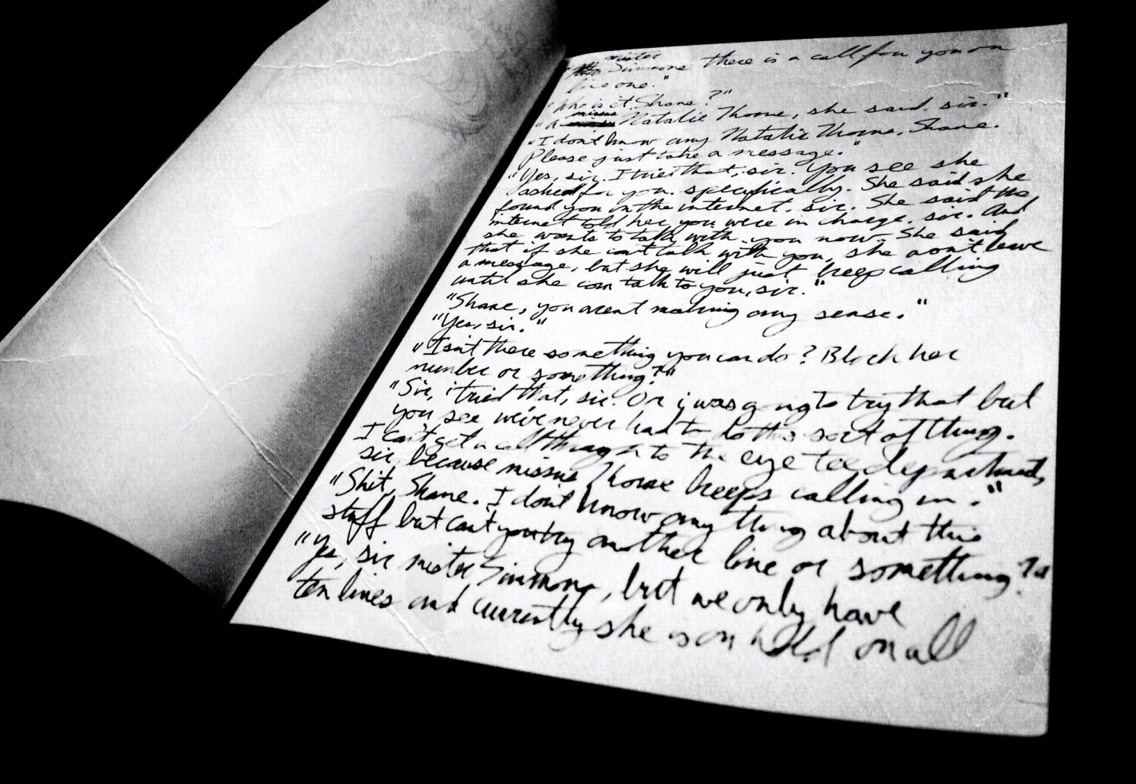 mister Simmons there is a call for you on
line one."
"who is it, Shane?"
"a missus Natalie Thorne, she said, sir."
"I don't know any Natalie Thorne, Shane.
Please just take a message."
"Yes, sir. I tried that, sir. You see she
asked for you. specifically. She said she
found you on the internet. sir. She said the
internet told her you were in charge. sir. And
she wants to talk with you now. She said
that if she can't talk with you, she won't leave
a message, but she will just keep calling
until she can talk to you, sir."
"Shane, you arent making any sense."
"Yes, sir."
"Isn't there something you can do? Block her
number or something?"
"Sir, i tried that, sir. Or i was going to try that but
you see we've never had to do this sort of thing.
I can't get a call through to the eye tee department,
sir, because missus Thorne keeps calling in."
"Shit, Shane. I dont know anything about this
stuff but cant you try another line or something?"
"Yes, sir mister Simmons, but we only have
ten lines and currently she is on hold on all